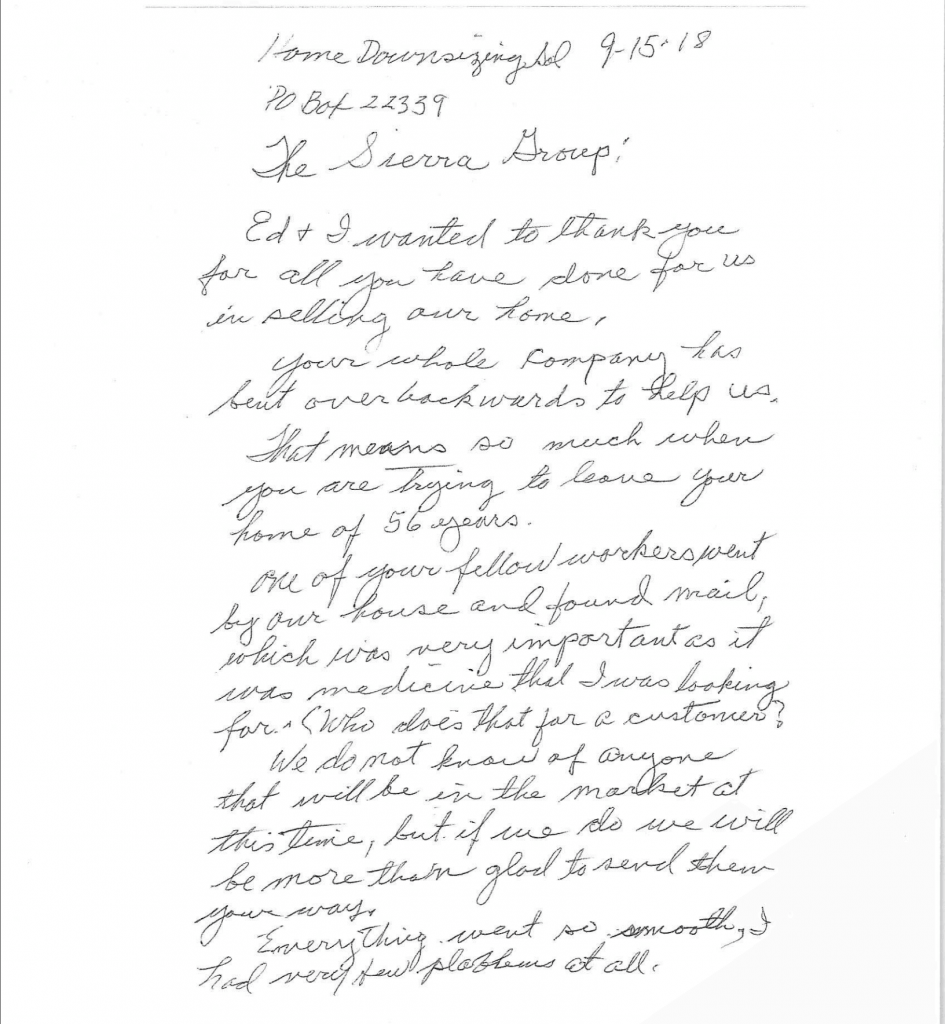 Home Downsizing Sol 9-15-18
PO Box 22339
The Sierra Group!
Ed + I wanted to thank you
for all you have done for us
in selling our home,
your whole company has
bent over backwards to help us.
That means so much when
you are trying to leave your
home of 56 years.
one of your fellow workers went
by our house and found mail,
which was very important as it
was medicine that I was looking
for. (Who does that for a customer?
We do not know of anyone
that will be in the market at
this time, but if we do we will
be more than glad to send them
your way.
Everything went so smooth, I
had very few problems at all.